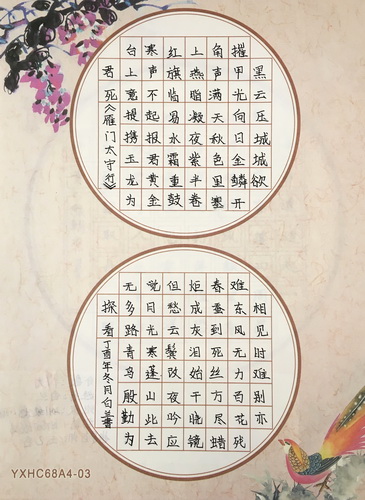 黑云压城城欲
摧甲光向日金鳞开
角声满天秋色里塞
上燕脂凝夜紫半卷
红旗临易水霜重鼓
寒声不起报君黄金
台上意提携玉龙为
君死《雁门太守行》
相见时难别亦
难东风无力百花残
春蚕到死丝方尽蜡
炬成灰泪始干晓镜
但愁云鬓改夜吟应
觉月光寒蓬山此去
无多路青鸟殷勤为
探看丁酉年冬月白兰書
YXHC68A4-03